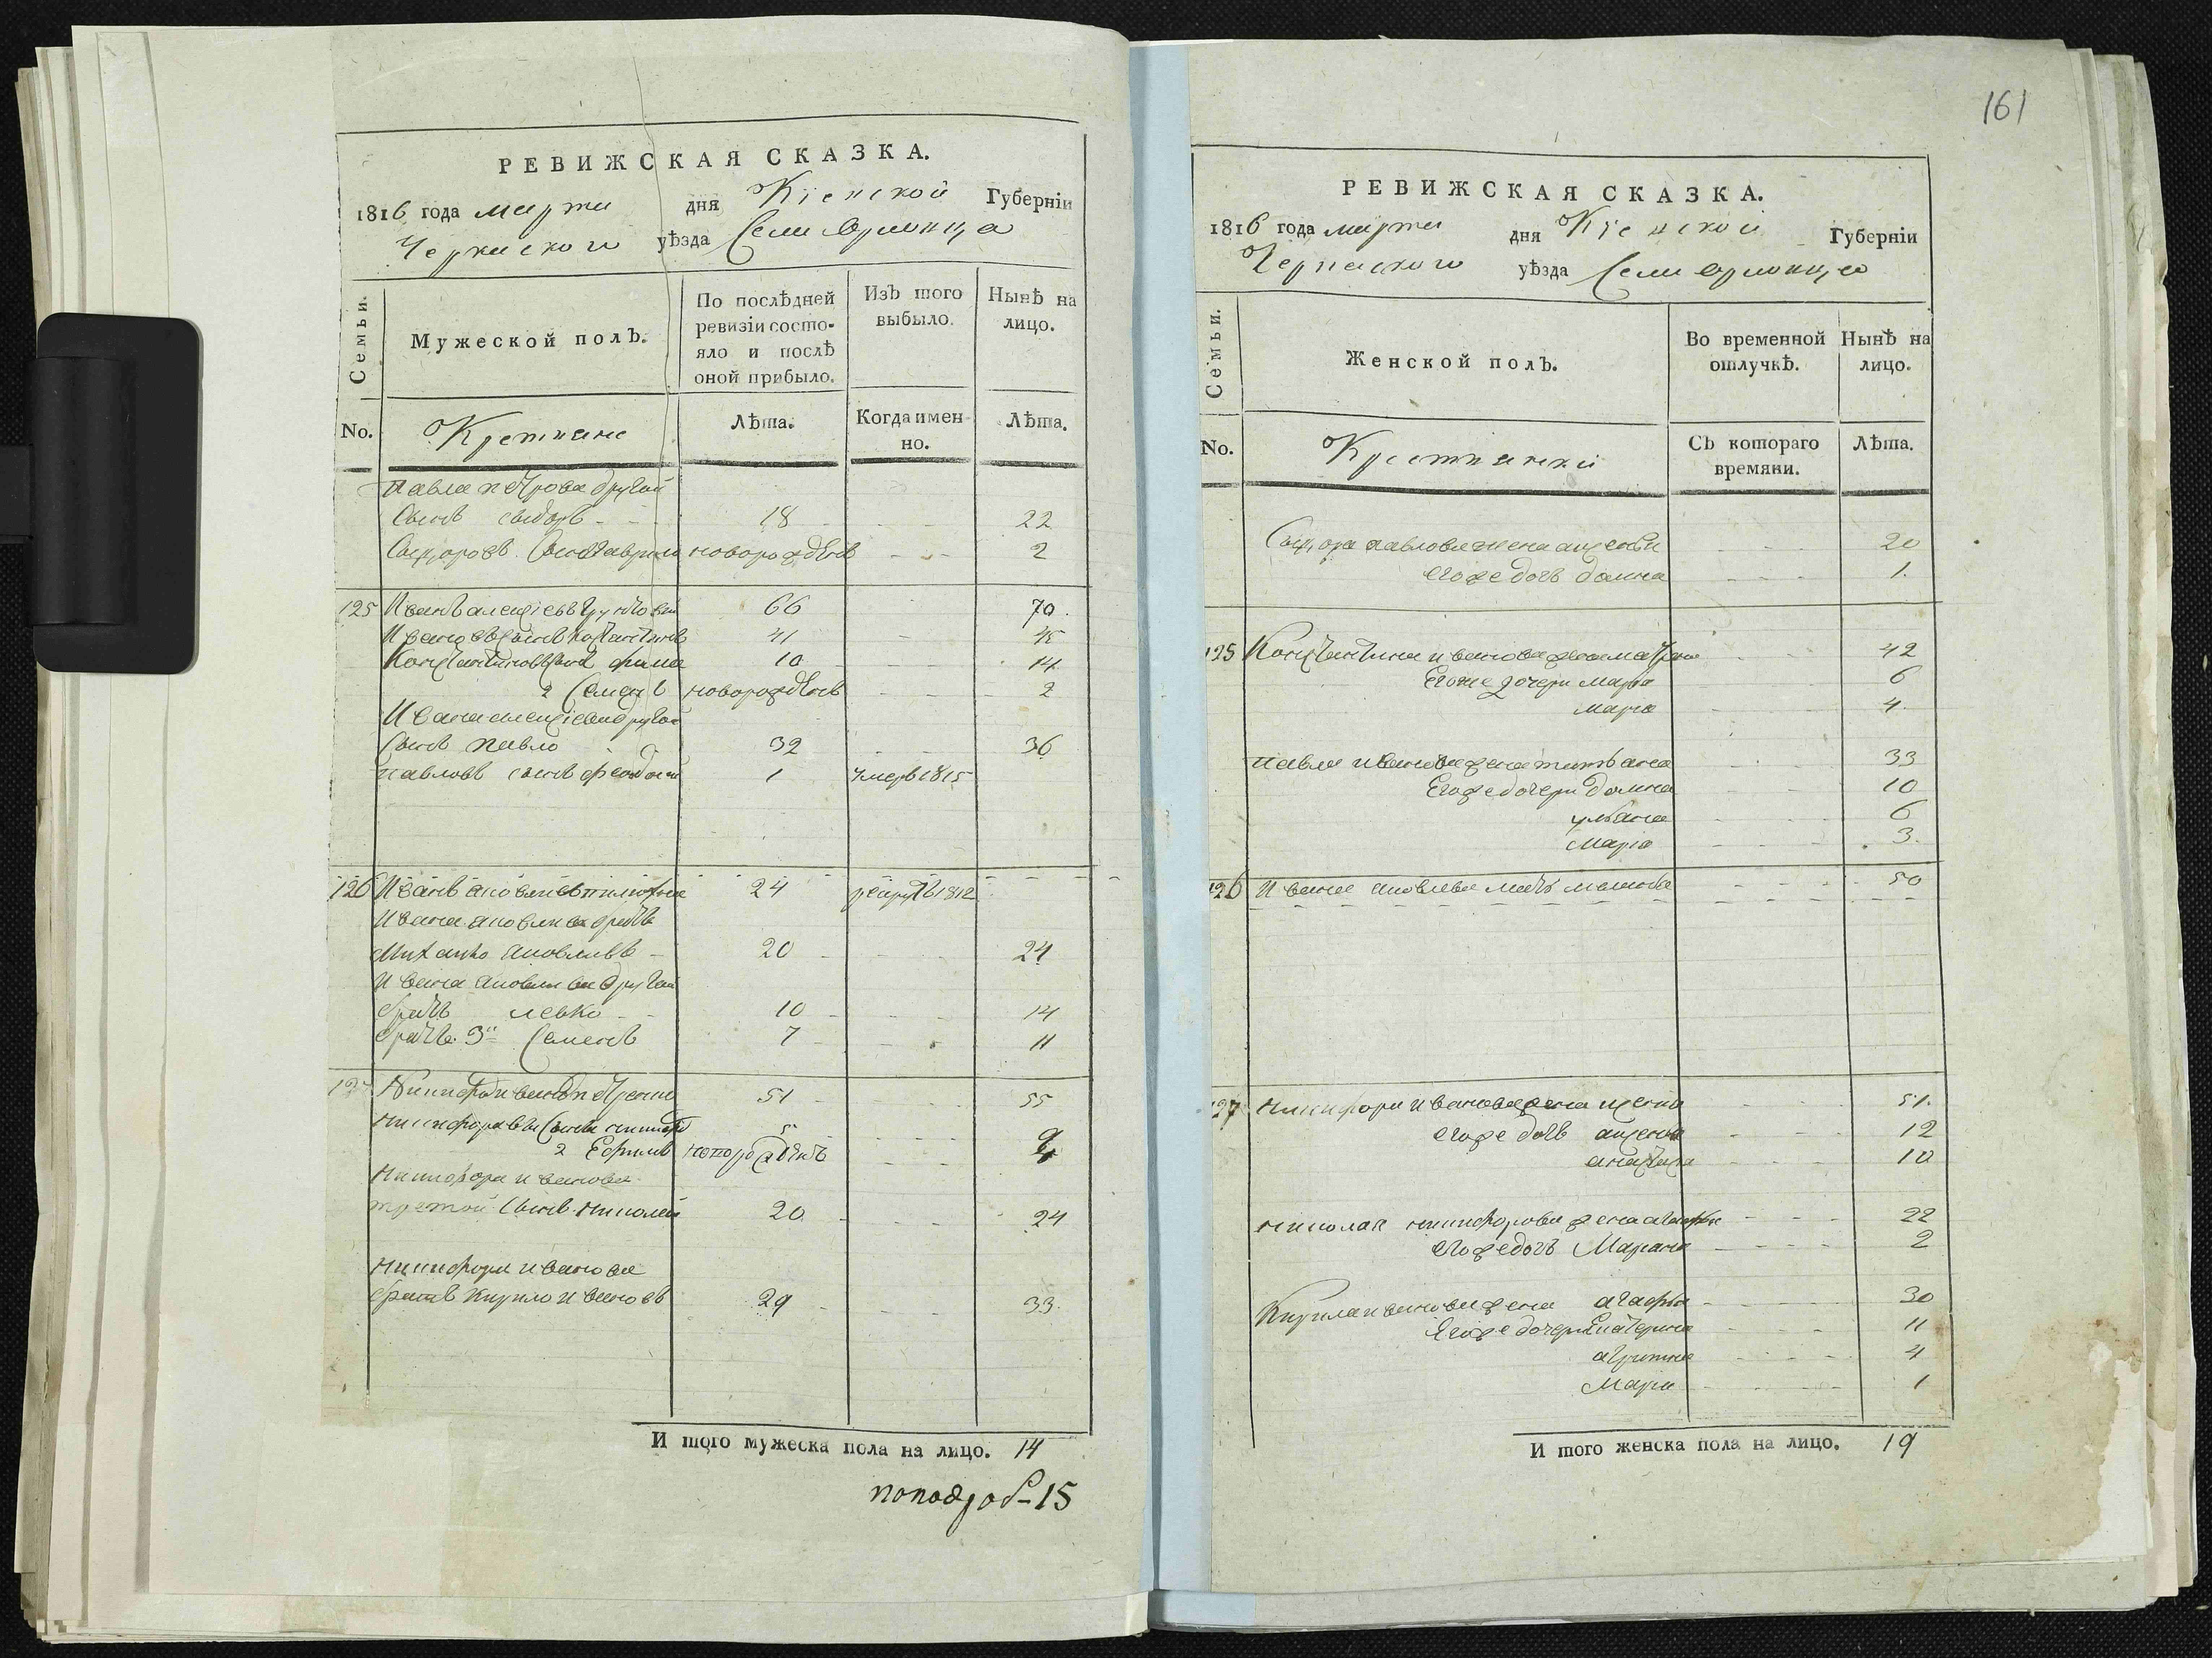 РЕВИЖСКАЯ СКАЗКА.
1816 года марта дня Кіевской Губерніи
Черкаского уѣзда Села Орловца
Семьи.
Мужеской полъ.
По послѣдней ревизіи состояло и послѣ оной прибыло.
Изъ того выбыло.
Нынѣ на лицо.
No.
Крестяне
Лѣта.
Когда именно.
Лѣта.
Павла Петрова другой
Сынъ Сидоръ 18 22
Сидоровъ Сынъ Гаврило новорожденъ 2
125 Иванъ 66 70
Ивановъ Сынъ Костантинъ 41 45
Константиновъ Сынъ 10 14
2 Семенъ новорожденъ 2
Ивана другой
Сынъ Павло 32 36
Павловъ сынъ Феодосий 1 умеръ 1815
126 Иванъ Яковлевъ 24 рекрутъ 1812
Ивана Яковлева братъ
Михайло Яковлевъ 20 24
Ивана Яковлева другой
братъ Левко 10 14
братъ 3й Семенъ 7 11
127 Никифоръ Ивановъ Петренко 51 55
Никифоровы Сыны 5 9
2 Ефимъ новорожденъ
Никифора Иванова
третой Сынъ Николай 20 24
Никифора Иванова
братъ Кирило Ивановъ 29 33
И того мужеска пола на лицо. 14
15
161
РЕВИЖСКАЯ СКАЗКА.
1816 года марта дня Кіевской Губерніи
Черкаского уѣзда Села Орловца
Семьи.
Женской полъ.
Во временной отлучкѣ.
Нынѣ на лицо.
No.
Крестянскій
Съ котораго времяни.
Лѣта.
Сидора Павлова жена 20
Егоже дочь Домна 1.
125 Константина Иванова жена Матрона 42
Егоже дочери Марфа 6
Марія 4
Павла Иванова жена Татьяна 33
Егоже дочери Домна 10
Ульяна 6
Марія 3
126 Ивана Яковлева мать 50
127 Никифора Иванова жена 51.
егоже дочь 12
Анастасія 10
Николая Никифорова жена Агафія 22
егоже дочь Маріана 2
Кирила Иванова жена Агафія 30
Егоже дочери Екатерина 11
Агрипина 4
Марія 1
И того женска пола на лицо. 19